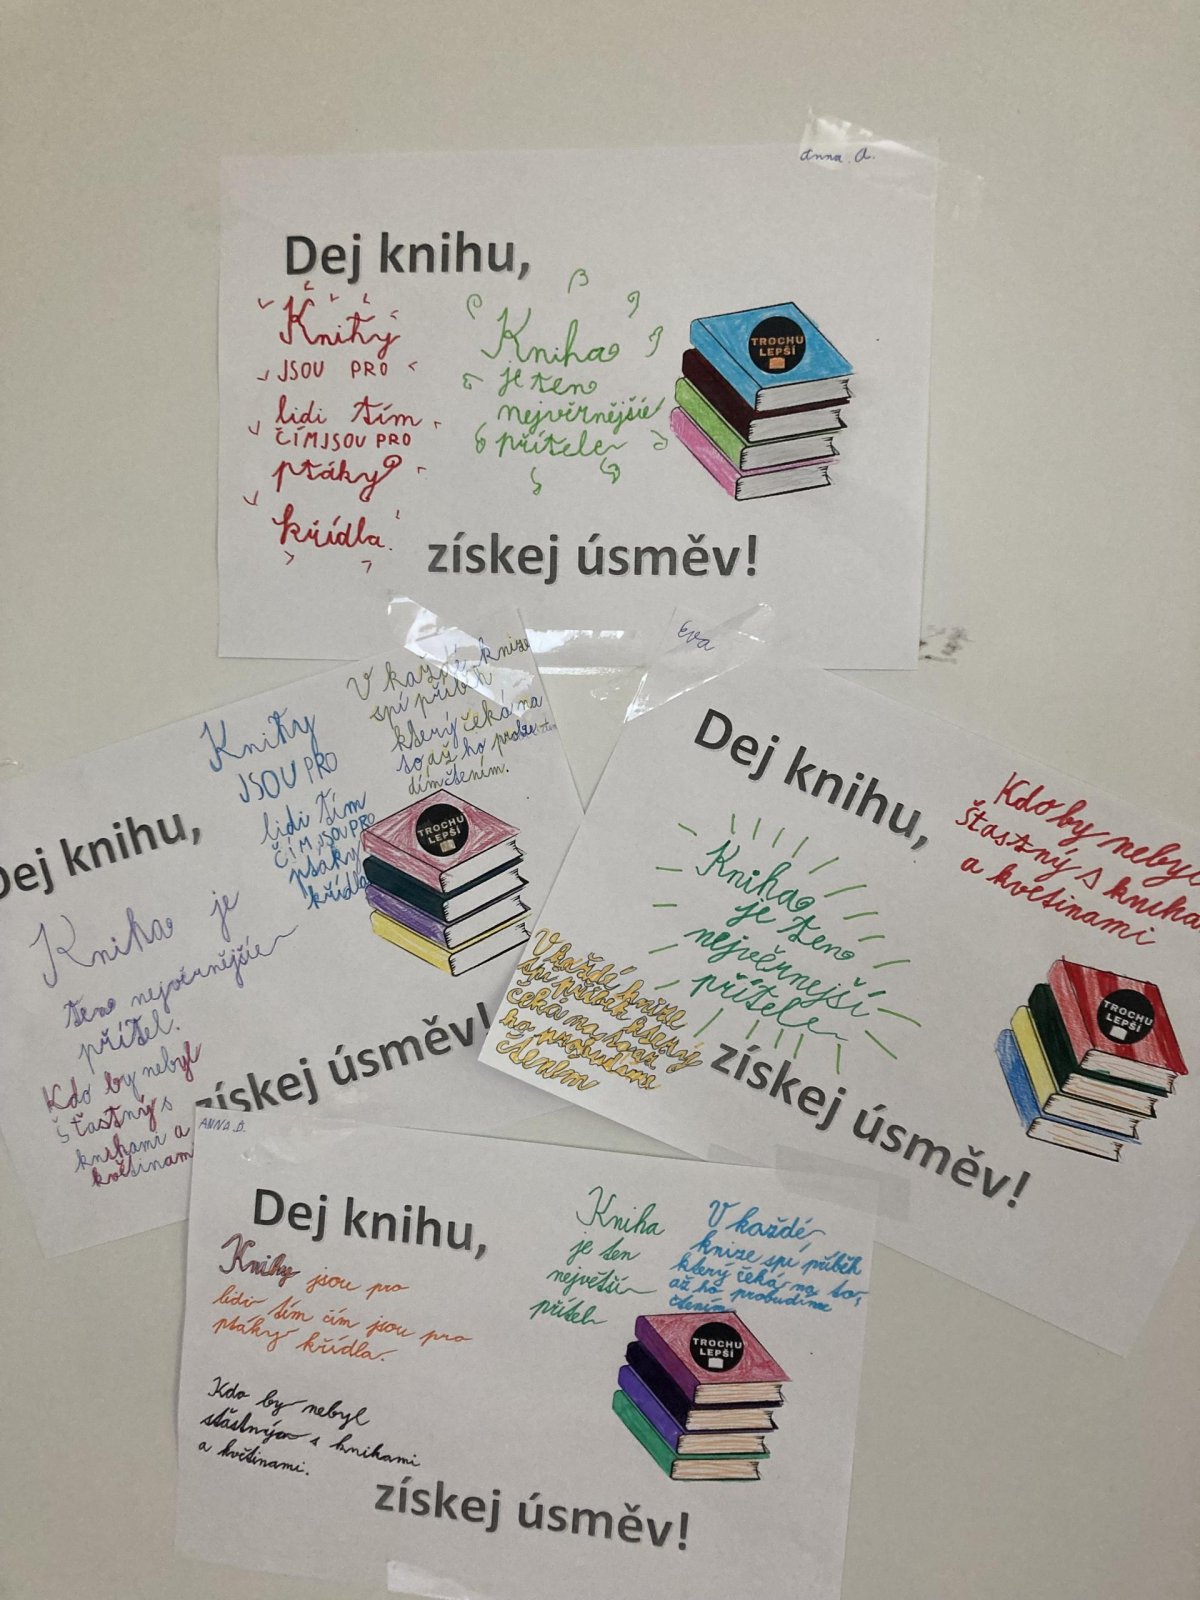 Anna. A.
Dej knihu,
Knihy
JSOU PRO
lidi tím
ČÍM JSOU PRO
ptáky
křídla.
Kniha
je ten
nejvěrnějšíe
přítele
TROCHU
LEPŠÍ
získej úsměv!
V každé knize
spí příběh
který čeká na
to až ho
dím čtením.
Knihy
JSOU PRO
lidi tím
ČÍM JSOU PRO
ptáky
křídla
Dej knihu,
TROCHU
LEPŠÍ
Kniha je
ten nejvěrnějšíe
přítel.
Kdo by nebyl
šťastný s
knihami a
květinam
získej úsměv!
Eva
Dej knihu,
Kdo by nebyl
šťastný s kniha
a květinami
Kniha
je ten
nejvěrnejší
přítele
V každé knize
spí příběh který
čeká na to až
ho probudíme
čtením
TROCHU
LEPŠÍ
získej úsměv!
ANNA.B.
Dej knihu,
Knihy jsou pro
lidi tím čím jsou pro
ptáky křídla.
Kniha
je ten
největší
přítel
V každé
knize spí příběh
který čeká na to,
až ho probudíme
čtením
Kdo by nebyl
sťastný s knihami
a květinami.
TROCHU
LEPŠÍ
získej úsměv!